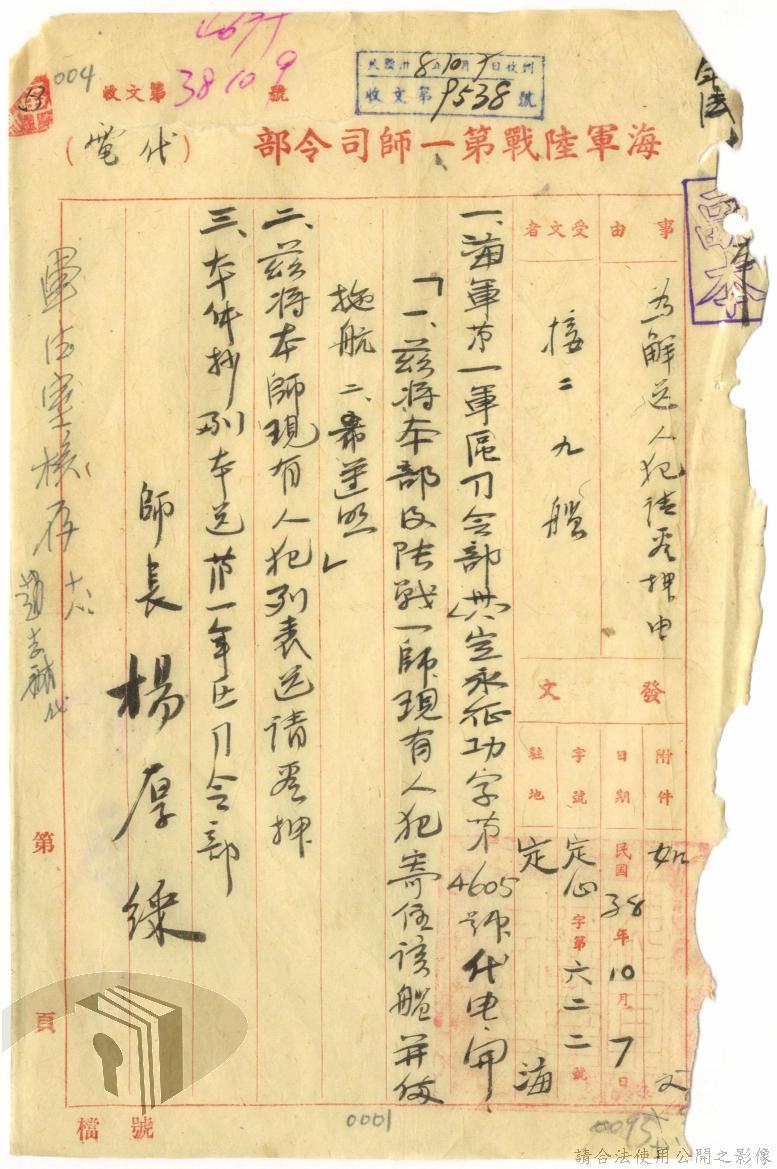 004
收文第 38109 號
8 10
收文第9538號
海軍陸戰第一師司令部
(代電)
副本
事由
為解送人犯請看押由
受文者
接二九艦
發文
附件
如文
日期
民國38年10月7日
字號
定 字第六二二號
駐地
定海
一、海軍第一軍區司令部 永征功字第4605號代电開
「一、茲將本部及陸戰一師現有人犯寄往該艦并
拖航 二、希遵照」
二、茲將本師現有人犯列表送請看押
三、本件抄副本送第一軍區司令部
師長 楊厚綵
軍法室核存
第 頁
檔號
0001
0095
請合法使用公開之影像